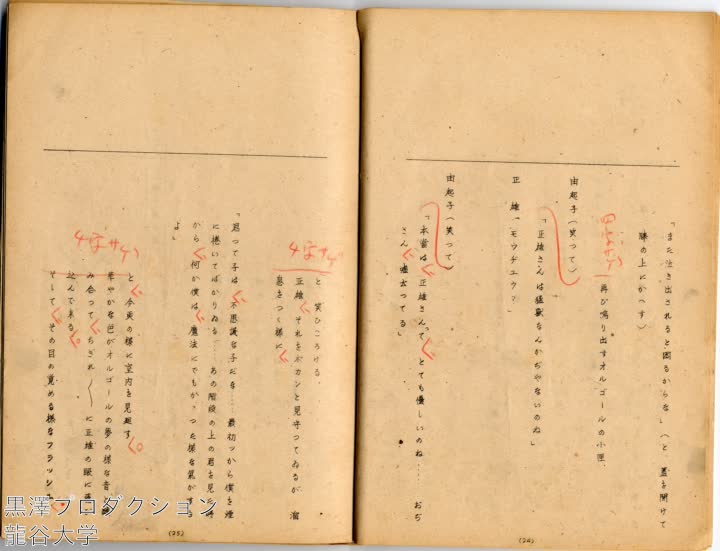 「また泣き出されると困るからな」（と、蓋を開けて
膝の上にかへす）
四字サゲ
再び鳴り出すオルゴールの小匣
由起子（笑つて）
「正雄さんは猛獣なんかぢやないのね」
正雄「モウヂュウ？」
由起子（笑つて）
「本當は、正雄さんて、とても優しいのね…… おぢ
さん、嘘云つてる」
(24)
と 笑ひころける
4字サゲ
正雄、それをポカンと見守つてゐるが 溜
息をつく様に、
「君つて子は、不思議な子だな…… 最初ッから僕を煙
に捲いてばかりゐる…… あの階段の上の君を見た時
から、何か僕は、魔法にでもかゝつた様な氣がする
よ」
4字サゲ
と、今更の様に室内を見廻す。
華やかな色がオルゴールの夢の様な音と
み合つて、ちぎれ〱に正雄の眼に
込んで来る。
そして、その目の覚める様なフラッシュ
(25)
黒澤プロダクション
龍谷大学